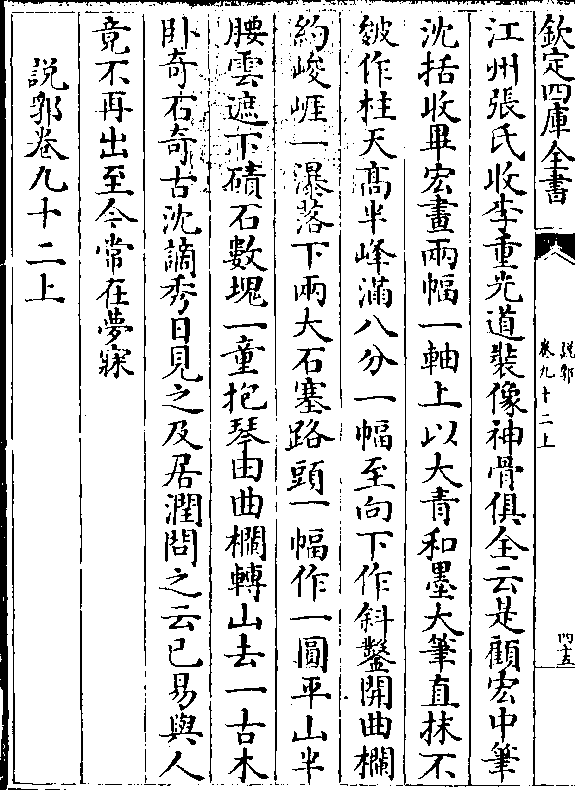 欽定四庫全書
説郛
卷九十二上
四十五
江州張氏收李重光道裝像神骨俱全云是顧宏中筆
沈括收畢宏畫兩幅一軸上以大青和墨大筆直抹不
皴作柱天髙半峰滿八分一幅至向下作斜鑿開曲欄
約峻崕一瀑落下兩大石塞路頭一幅作一圓平山半
腰雲遮下磧石數塊一童抱琴由曲欄轉山去一古木
卧奇石奇古沈謫秀日見之及居潤問之云已易與人
竟不再出至今常在夢寐
説郛卷九十二上